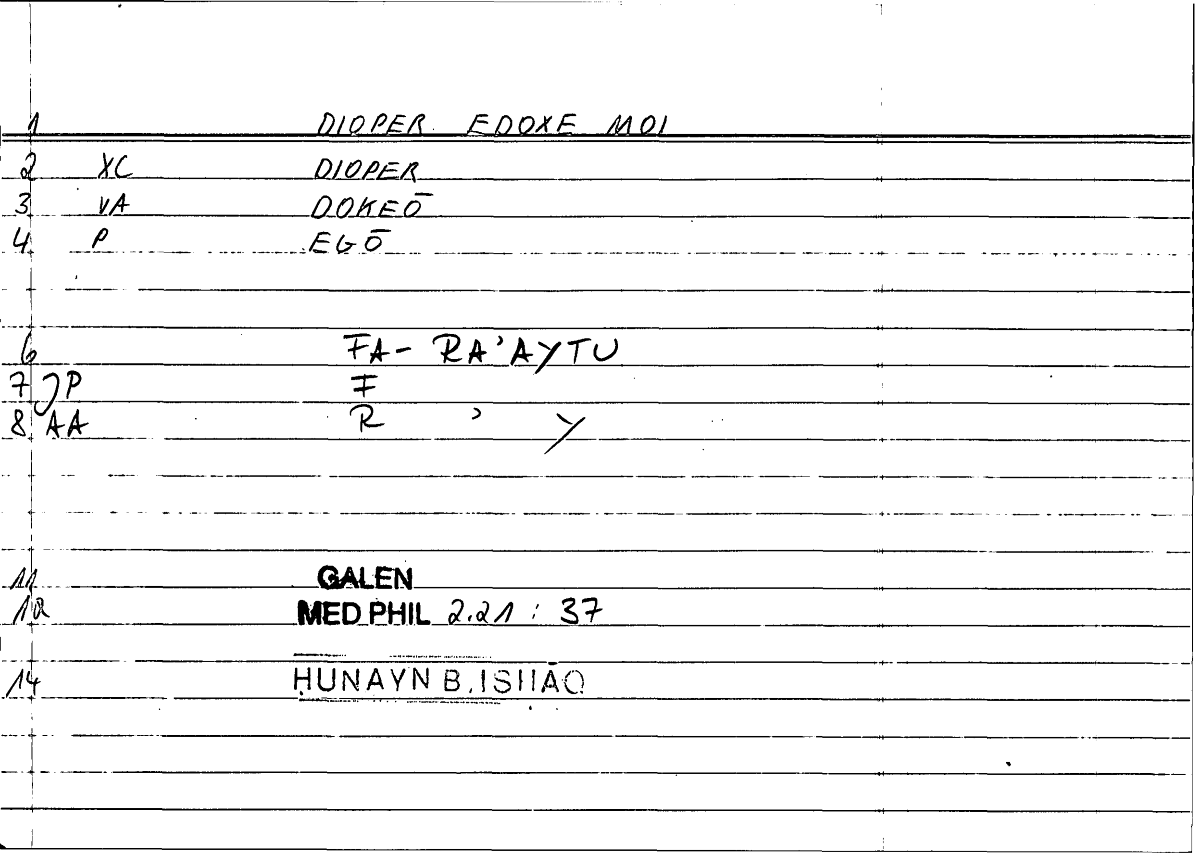 1 DIOPER EDOXE MOI
2 XC DIOPER
3 VA DOKEŌ
4 P EGŌ
6 FA- RA'AYTU
7 P F
8 AA R ' Y
11 GALEN
12 MED PHIL 2.21 : 37
14 ḤUNAYN B. ISḤĀQ